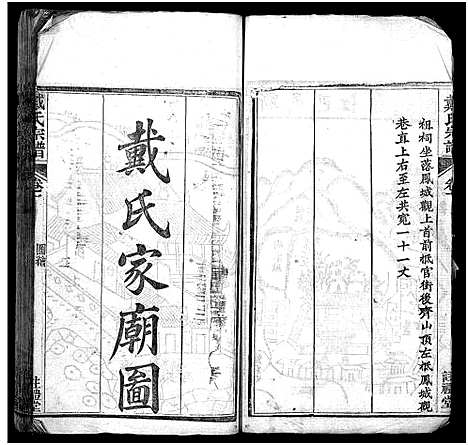 戴氏宗譜
卷一
祖祠坐落鳳城觀上首前抵官街後齊山頂左抵鳳城觀
巷直上右至左共寬一十一丈
註禮堂
戴氏家廟圖
戴氏宗譜
卷一
註禮堂